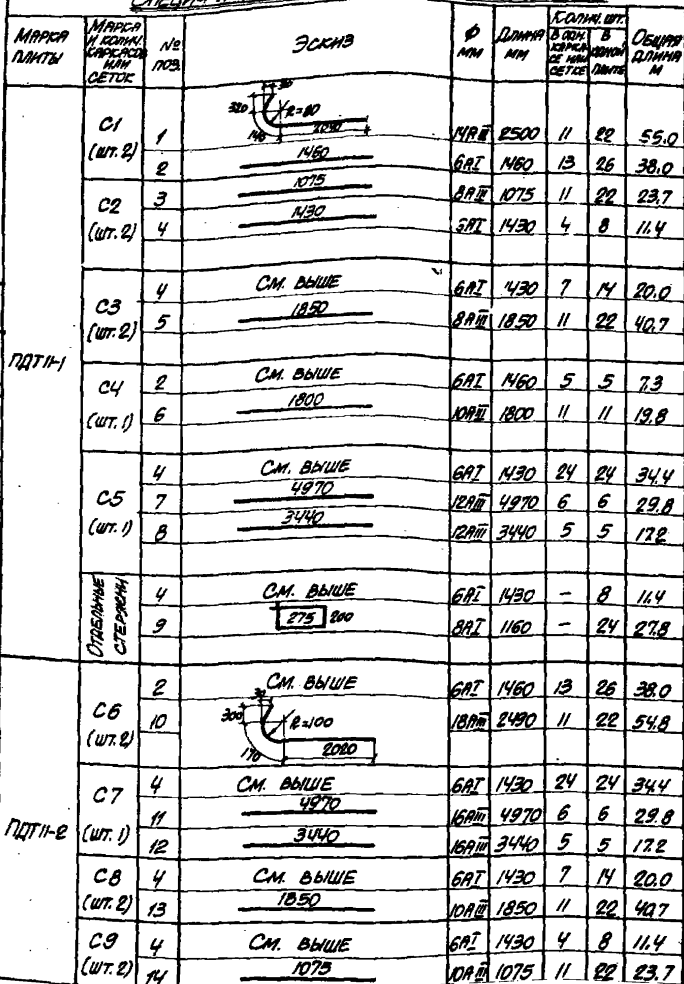 МАРКА ПЛИТЫ | МАРКА И КОЛИЧ. КАРКАСОВ ИЛИ СЕТОК | № ПОЗ. | ЭСКИЗ | Ф ММ | ДЛИНА ММ | КОЛИЧ. ШТ. | ОБЩАЯ ДЛИНА М
В ОДН. КАРКАСЕ ИЛИ СЕТКЕ | В ОДНОЙ ПЛИТЕ
ПДТ11-1
С1 (шт. 2) | 1 | 30 320 R=80 140 2040 | 14АIII | 2500 | 11 | 22 | 55.0
2 | 1460 | 6АI | 1460 | 13 | 26 | 38.0
С2 (шт. 2) | 3 | 1075 | 8АIII | 1075 | 11 | 22 | 23.7
4 | 1430 | 6АI | 1430 | 4 | 8 | 11.4
С3 (шт. 2) | 4 | СМ. ВЫШЕ | 6АI | 1430 | 7 | 14 | 20.0
5 | 1850 | 8АIII | 1850 | 11 | 22 | 40.7
С4 (шт. 1) | 2 | СМ. ВЫШЕ | 6АI | 1460 | 5 | 5 | 7.3
6 | 1800 | 10АIII | 1800 | 11 | 11 | 19.8
С5 (шт. 1) | 4 | СМ. ВЫШЕ | 6АI | 1430 | 24 | 24 | 34.4
7 | 4970 | 12АIII | 4970 | 6 | 6 | 29.8
8 | 3440 | 12АIII | 3440 | 5 | 5 | 17.2
ОТДЕЛЬНЫЕ СТЕРЖНИ | 4 | СМ. ВЫШЕ | 6АI | 1430 | - | 8 | 11.4
9 | 275 200 | 8АI | 1160 | - | 24 | 27.8
ПДТ11-2
С6 (шт. 2) | 2 | СМ. ВЫШЕ | 6АI | 1460 | 13 | 26 | 38.0
10 | 30 300 R=100 170 2020 | 18АIII | 2490 | 11 | 22 | 54.8
С7 (шт. 1) | 4 | СМ. ВЫШЕ | 6АI | 1430 | 24 | 24 | 34.4
11 | 4970 | 16АIII | 4970 | 6 | 6 | 29.8
12 | 3440 | 16АIII | 3440 | 5 | 5 | 17.2
С8 (шт. 2) | 4 | СМ. ВЫШЕ | 6АI | 1430 | 7 | 14 | 20.0
13 | 1850 | 10АIII | 1850 | 11 | 22 | 40.7
С9 (шт. 2) | 4 | СМ. ВЫШЕ | 6АI | 1430 | 4 | 8 | 11.4
14 | 1075 | 10АIII | 1075 | 11 | 22 | 23.7